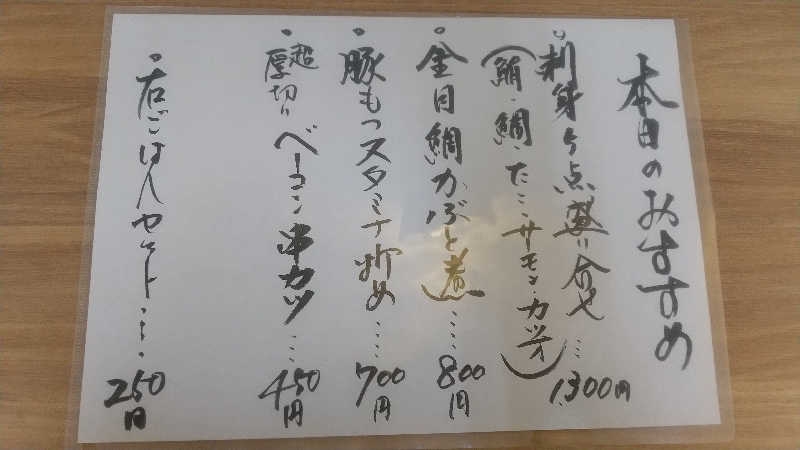 本日のおすすめ
。刺身5点盛り合せ…1,300円
(鮪・鯛・たこ・サーモン・カツオ)
。金目鯛かぶと煮……800円
・豚もつスタミナ炒め……700円
・超厚切りベーコン串カツ…450円
・石ごはんセット……250円